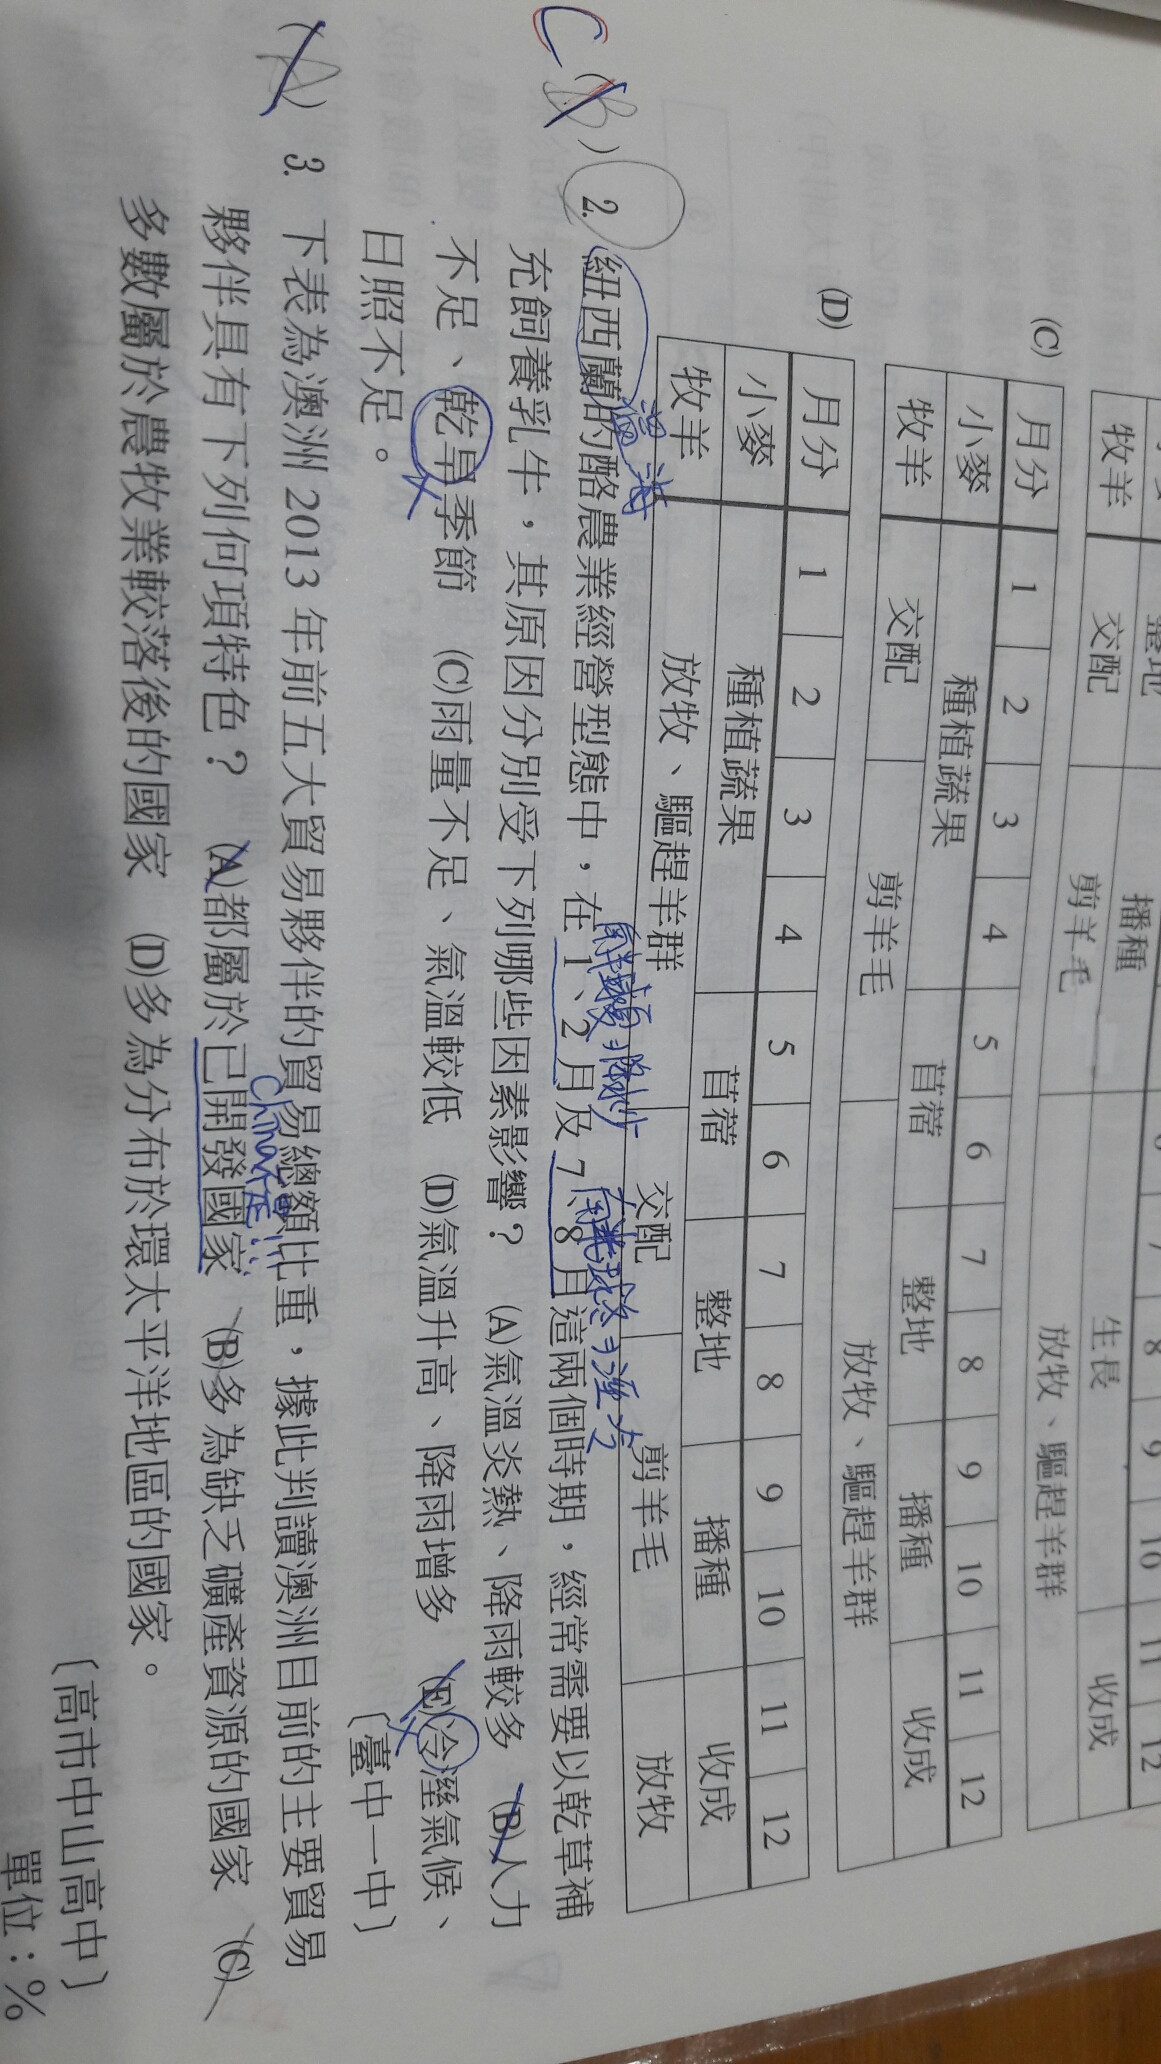 牧羊 交配 剪羊毛 放牧、驅趕羊群
整地 播種 生長 收成
(C)
月分 1 2 3 4 5 6 7 8 9 10 11 12
小麥 種植蔬果 苜蓿 整地 播種 收成
牧羊 交配 剪羊毛 放牧、驅趕羊群
(D)
月分 1 2 3 4 5 6 7 8 9 10 11 12
小麥 種植蔬果 苜蓿 整地 播種 收成
牧羊 放牧、驅趕羊群 交配 剪羊毛 放牧
C
(B) 2. 紐西蘭的酪農業經營型態中，在 1、2 月及 7、8 月這兩個時期，經常需要以乾草補
充飼養乳牛，其原因分別受下列哪些因素影響？ (A)氣溫炎熱、降雨較多 (B)人力
不足、乾旱季節 (C)雨量不足、氣溫較低 (D)氣溫升高、降雨增多 (E)冷溼氣候、
日照不足。 〔臺中一中〕
( ) 3. 下表為澳洲 2013 年前五大貿易夥伴的貿易總額比重，據此判讀澳洲目前的主要貿易
China
夥伴具有下列何項特色？ (A)都屬於已開發國家 (B)多為缺乏礦產資源的國家 (C)
多數屬於農牧業較落後的國家 (D)多為分布於環太平洋地區的國家。
〔高市中山高中〕
單位：%